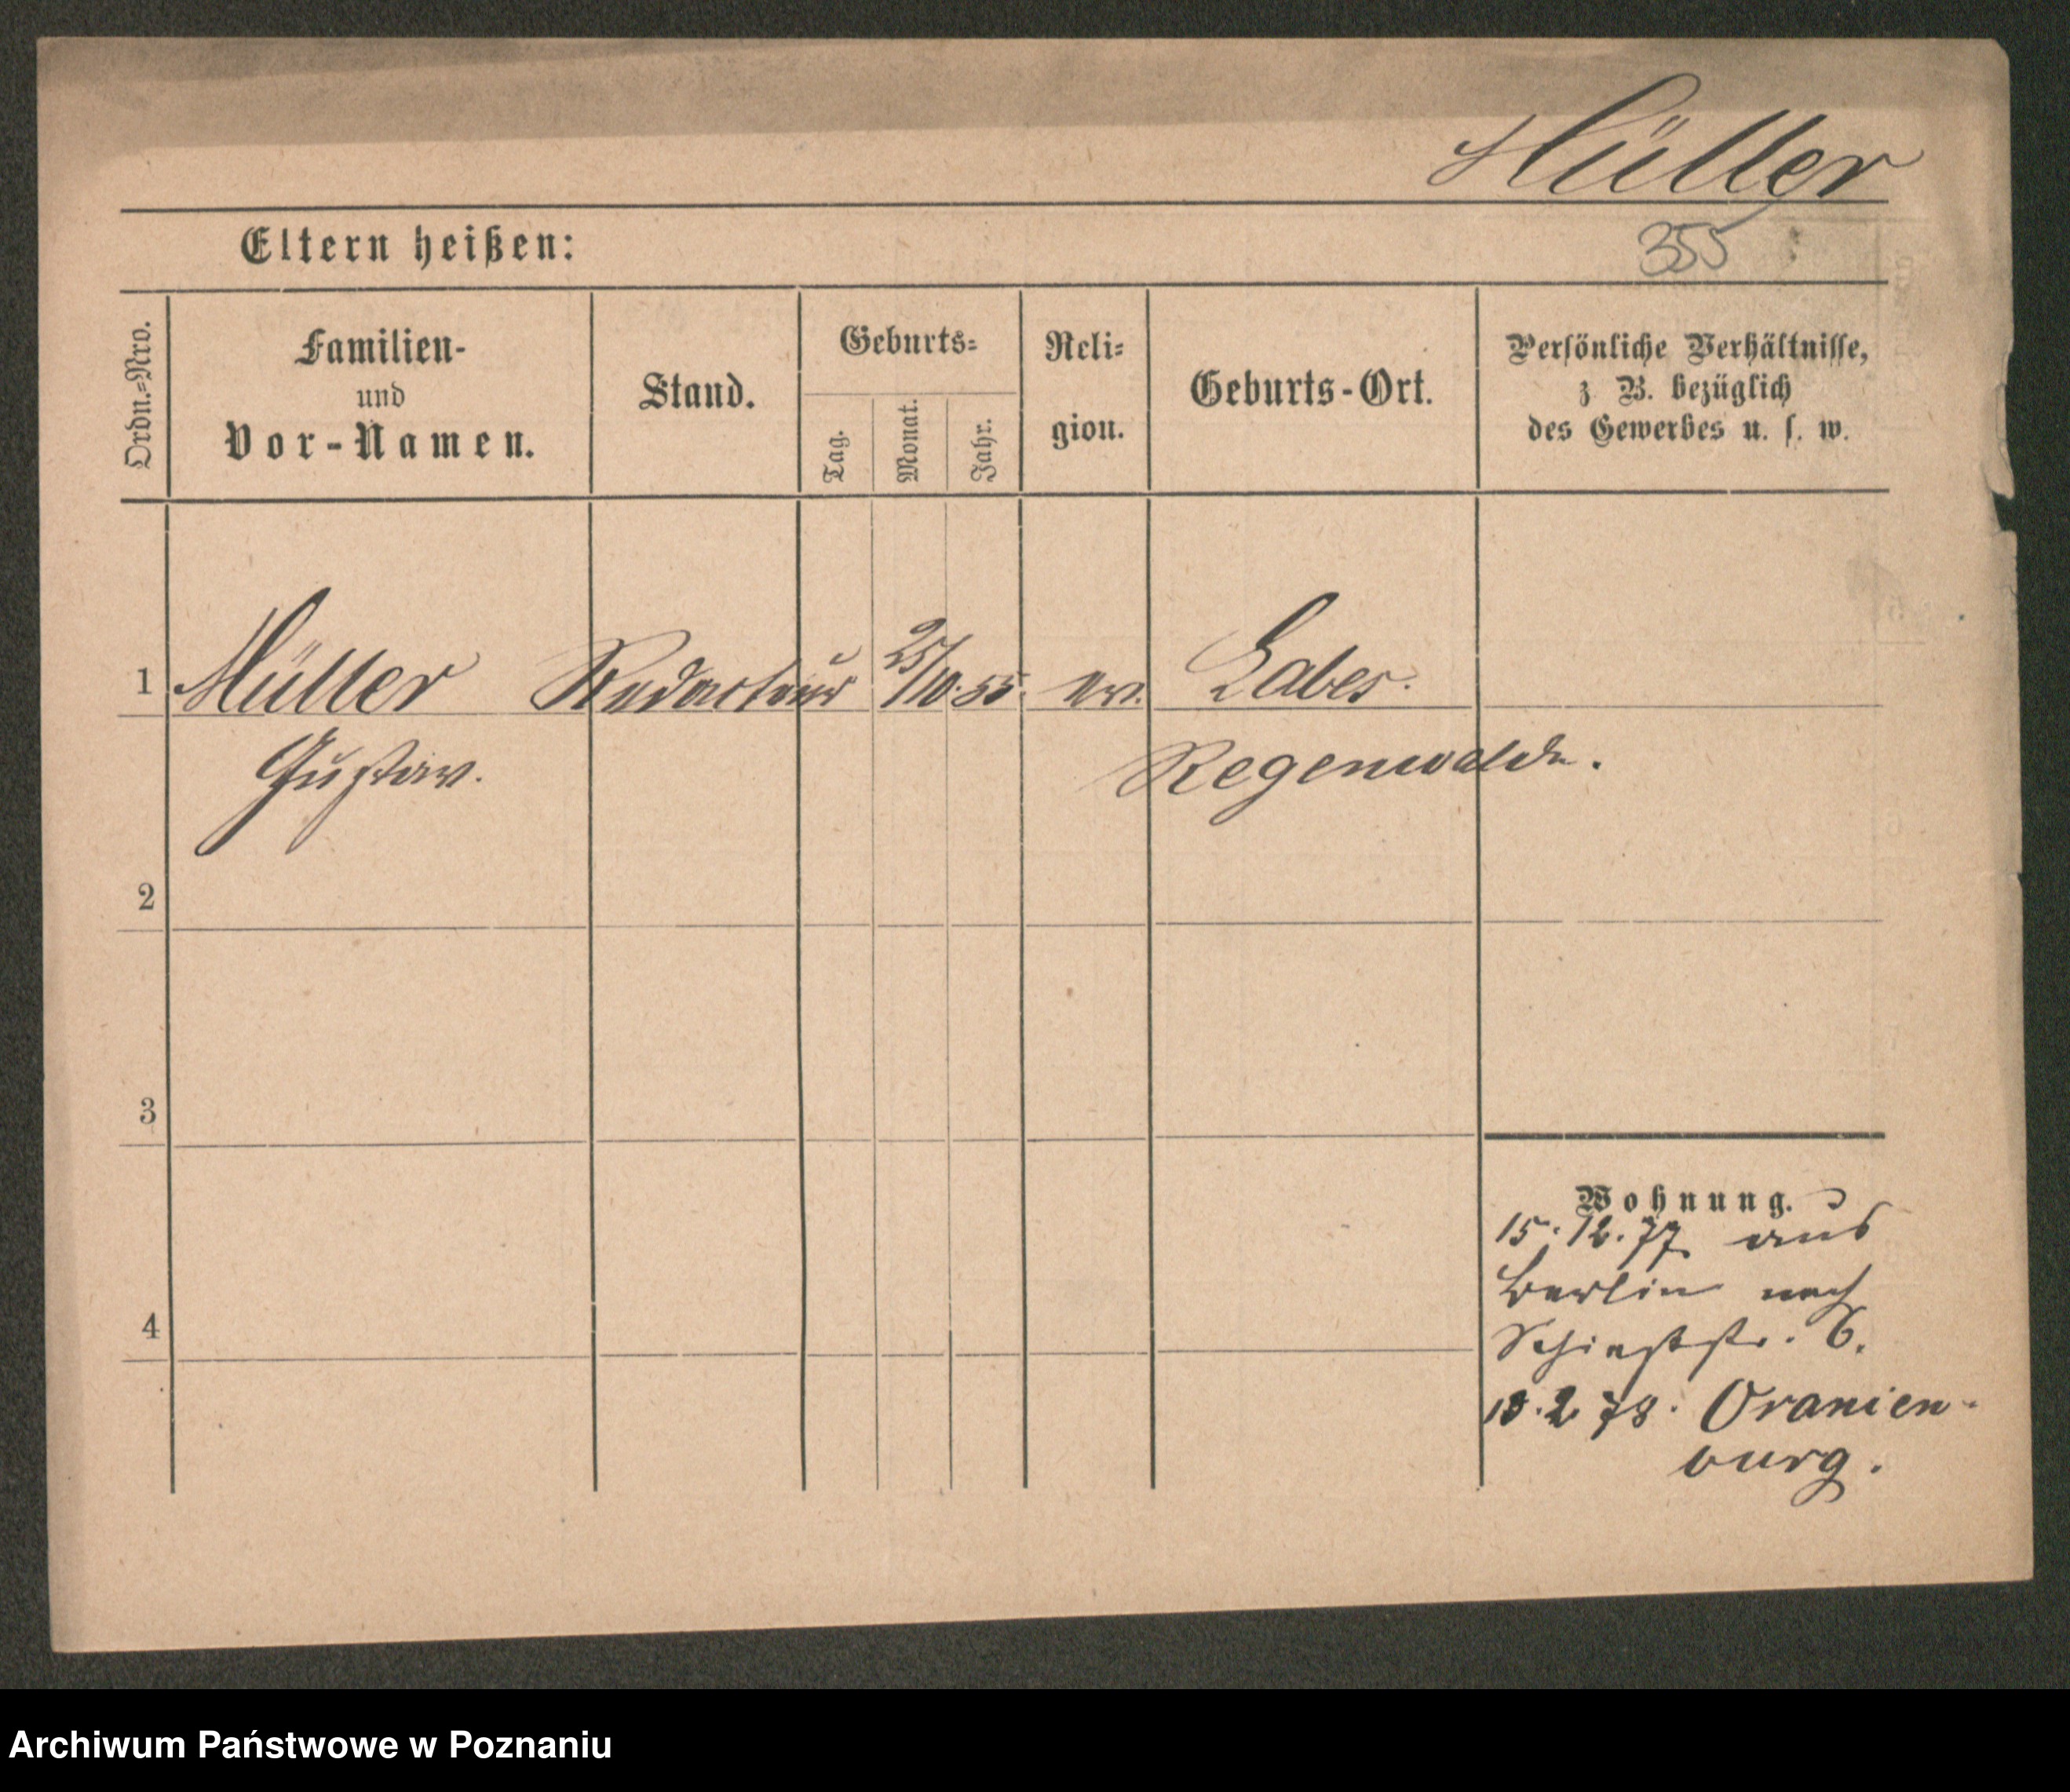 Müller
355
Eltern heißen:
Ordn.=Nro.
Familien-
und
Vor-Namen.
Stand.
Geburts=
Tag.
Monat.
Jahr.
Reli=
gion.
Geburts-Ort.
Persönliche Verhältnisse,
z. B. bezüglich
des Gewerbes u. s. w.
1 Müller Redacteur 25/10. 55. ev. Labes.
Gustav. Regenwalde.
2
3
4
Wohnung.
15. 12. 77 aus
Berlin nach
6.
18. 2. 78. Oranien-
burg.
Archiwum Państwowe w Poznaniu